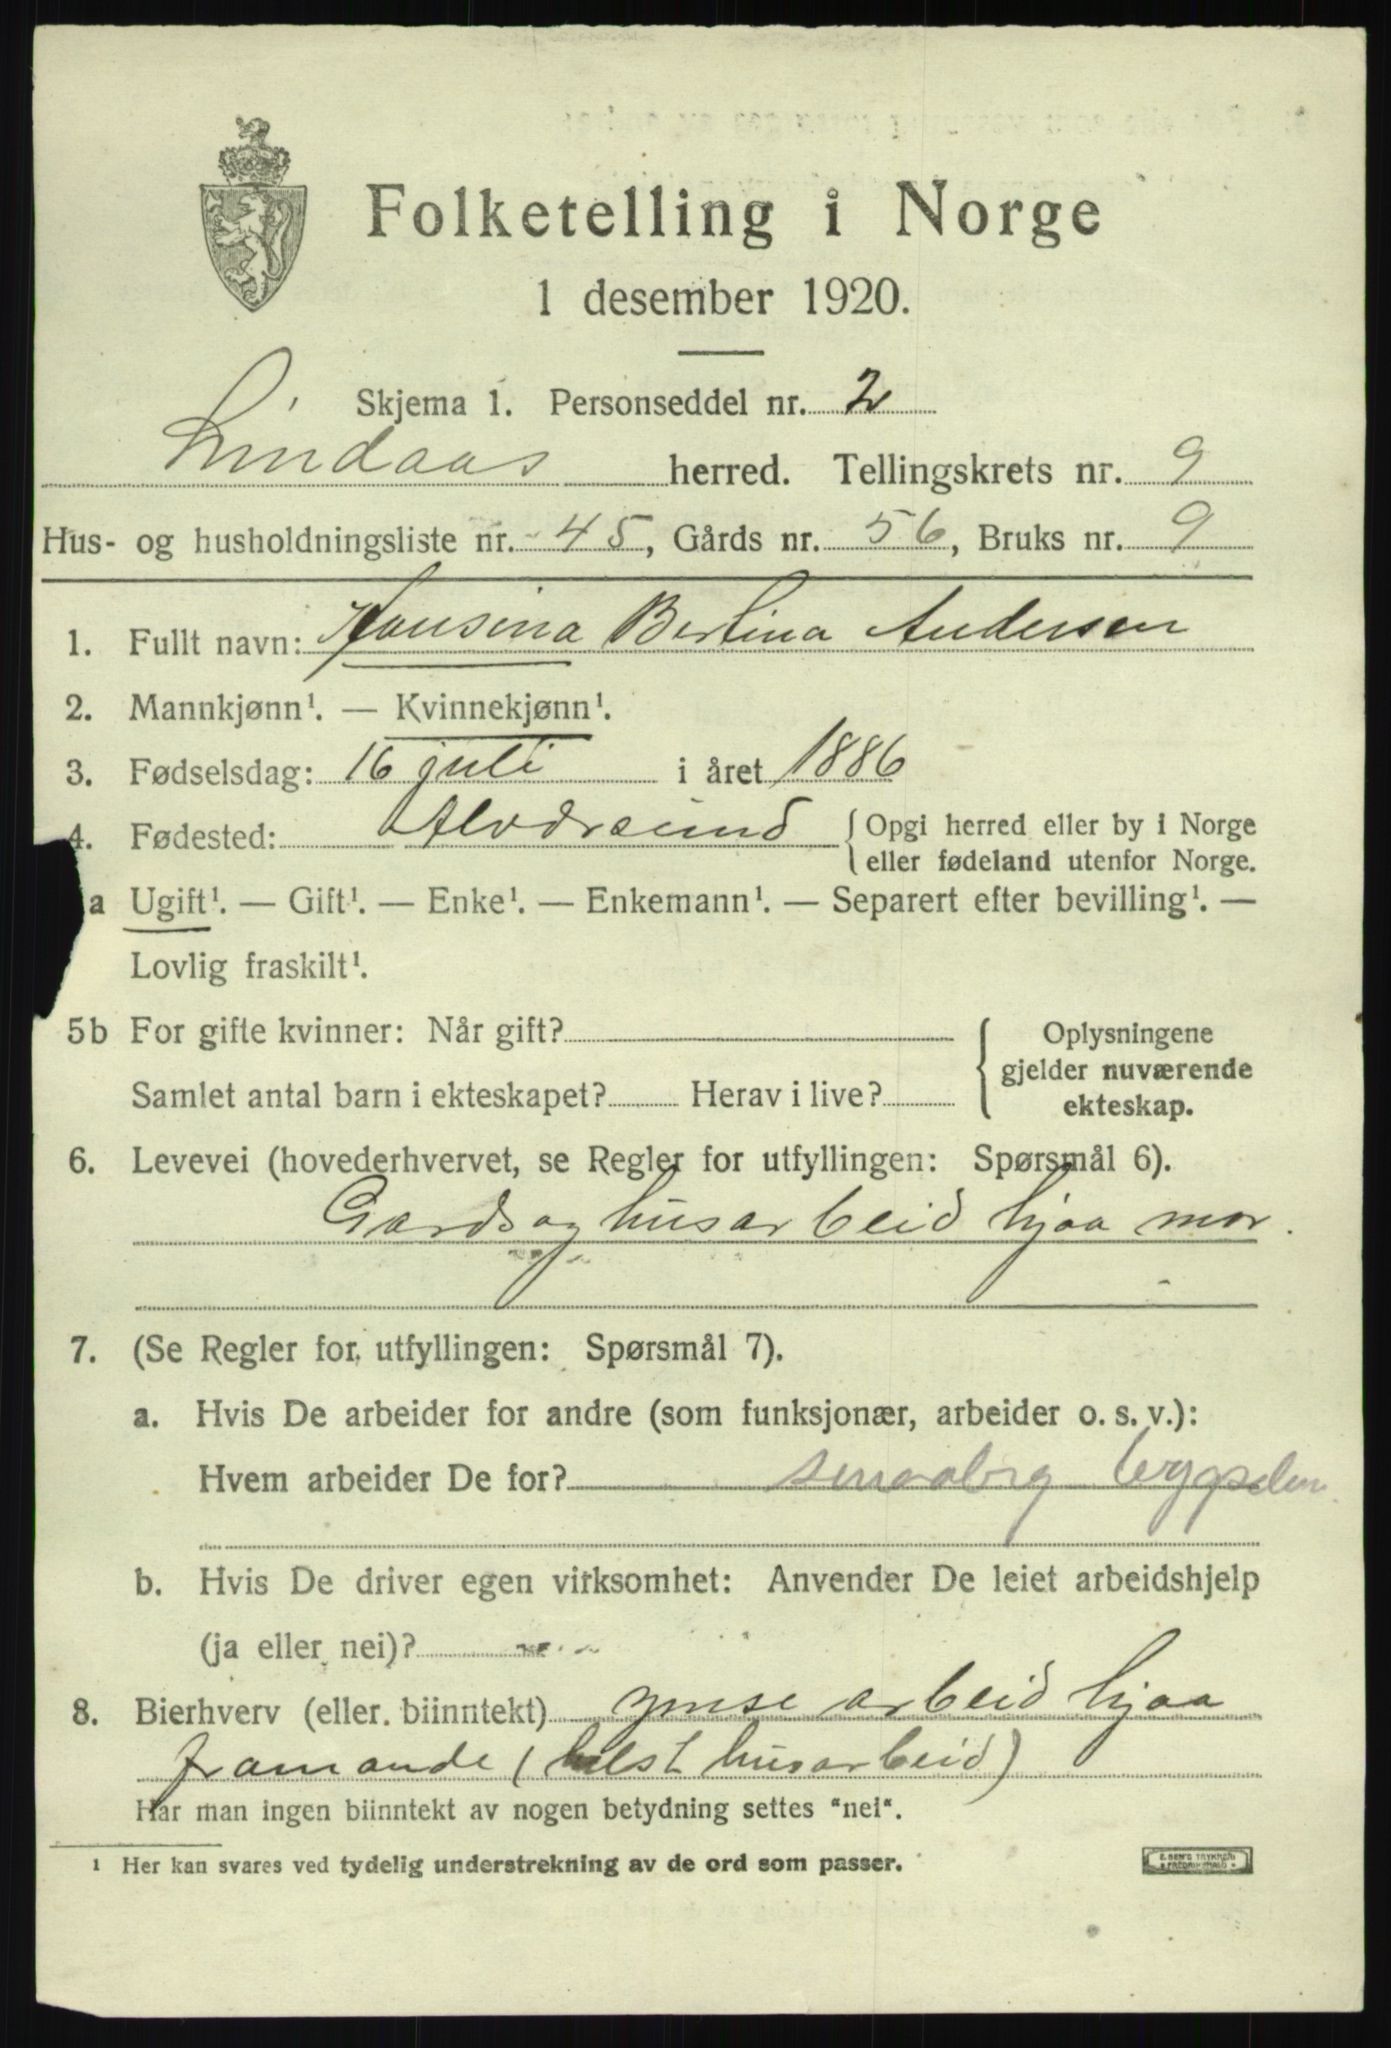 Folketelling i Norge
1 desember 1920.
Skjema 1. Personseddel nr. 2
Lindaas herred. Tellingskrets nr. 9
Hus- og husholdningsliste nr. 45, Gårds nr. 56, Bruks nr. 9
1. Fullt navn: Hansina Bertina Andersen
2. Mannkjønn¹. — Kvinnekjønn¹.
3. Fødselsdag: 16 juli i året 1886
4. Fødested: Alversund { Opgi herred eller by i Norge
eller fødeland utenfor Norge.
a Ugift¹. — Gift¹. — Enke¹. — Enkemann¹. — Separert efter bevilling¹. —
Lovlig fraskilt¹.
5b For gifte kvinner: Når gift? { Oplysningene
gjelder nuværende
Samlet antal barn i ekteskapet? Herav i live? ekteskap.
6. Levevei (hovederhvervet, se Regler for utfyllingen: Spørsmål 6).
Gards og husarbeid hjaa mor.
7. (Se Regler for utfyllingen: Spørsmål 7).
a. Hvis De arbeider for andre (som funksjonær, arbeider o. s. v.):
Hvem arbeider De for? smaabrg bygselm
b. Hvis De driver egen virksomhet: Anvender De leiet arbeidshjelp
(ja eller nei)?
8. Bierhverv (eller biinntekt) ymse arbeid hjaa
framande (helst husarbeid)
Har man ingen biinntekt av nogen betydning settes "nei".
¹ Her kan svares ved tydelig understrekning av de ord som passer.